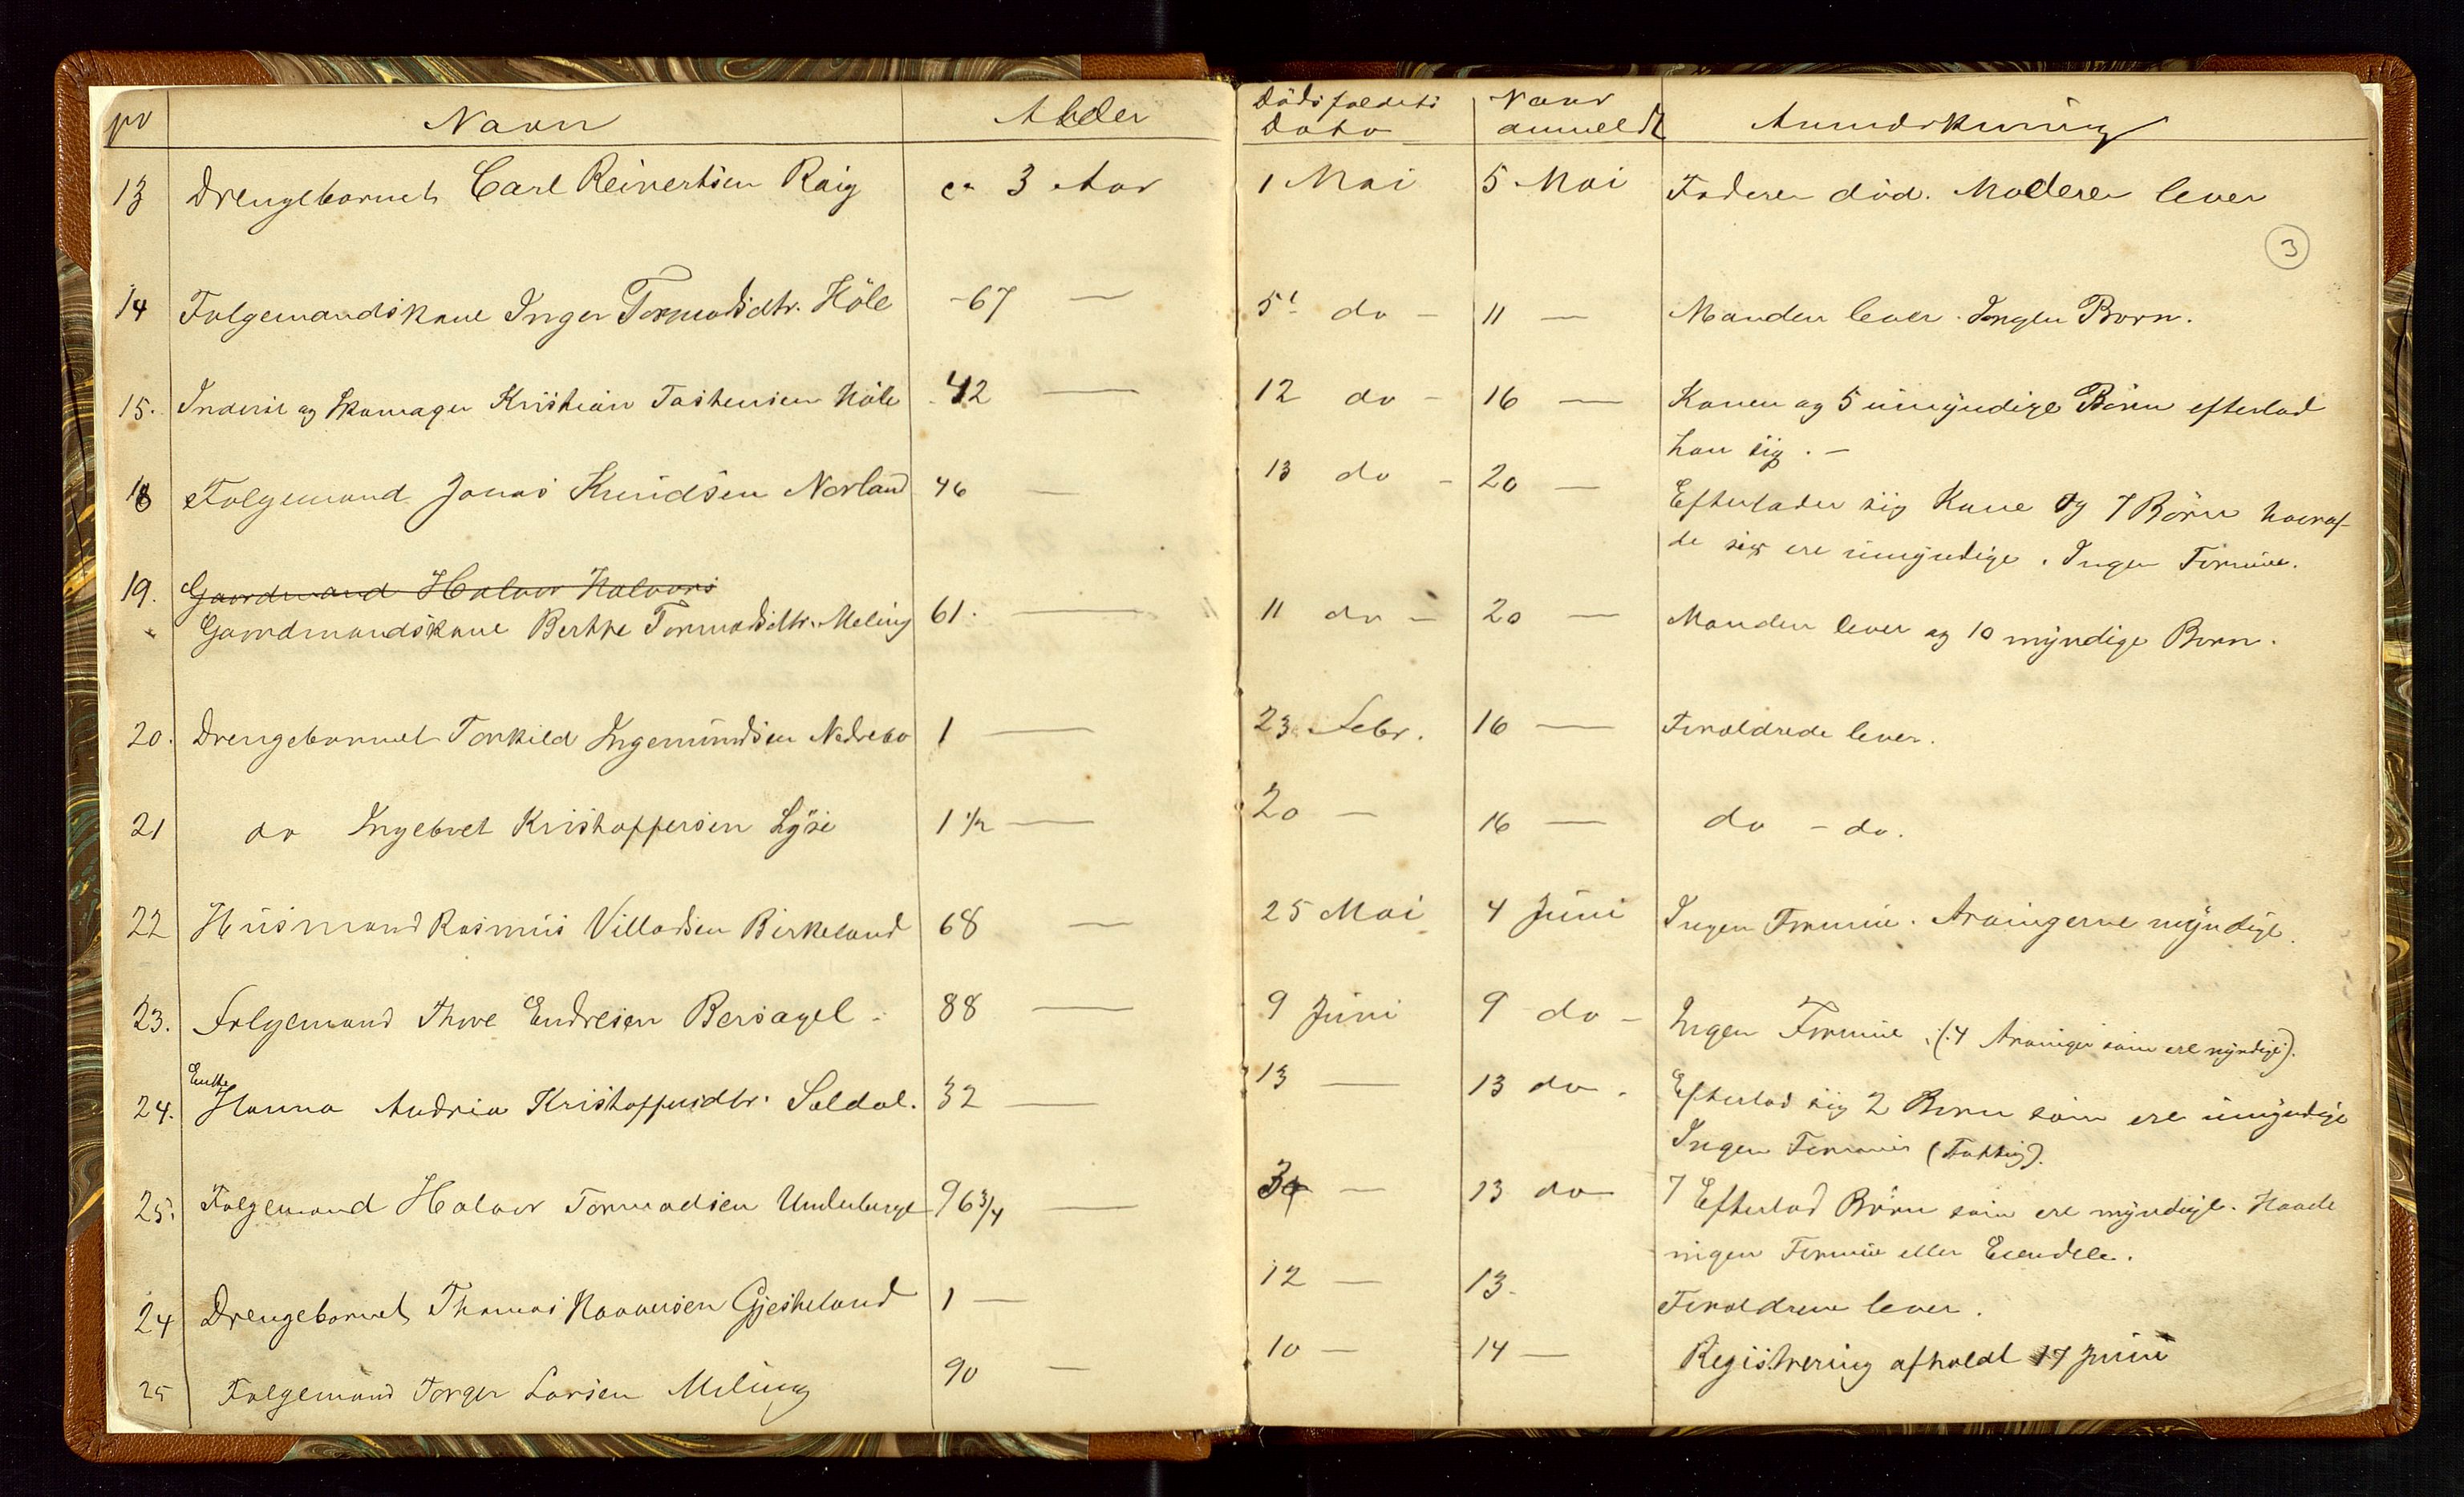 No Navn Alder Dødsfaldets Naar Anmærkning
Dato anmeldt
13 Drengebarnet Carl Reinertsen Raig ca 3 Aar 1 Mai 5 Mai Faderen død. Moderen lever
3
14 Folgemandskone Inger Tormodsdtr. Høle - 67 — 5t do — 11 — Manden lever. Ingen Børn.
15. Inderst og Skomager Kristian Tostensen Høle 42 — 12 do - 16 — Konen og 5 umyndige Børn efterlod
han sig. —
18 Folgemand Jonas Knudsen Norland 46 — 13 do - 20 — Efterlader sig Kone og 7 Børn hvoraf
de sex ere umyndige. Ingen Formue.
19. Gaardmand Halvor Halvors
Gaardmandskone Berthe Tormodsdtr. Meling 61. — 11 do — 20 — Manden lever og 10 myndige Børn.
20. Drengebarnet Torkild Ingemundsen Nedrebø 1 — 23 Febr. 16 — Forældrede lever.
21 do Ingebret Kristoffersen Lyse 1 1/2 — 20 — 16 — do - do.
22 Husmand Rasmus Villadsen Birkeland 68 — 25 Mai 4 Juni Ingen Formue. Arvingerne myndige.
23. Folgemand Thore Endresen Bersagel - 88 — 9 Juni 9 do - Ingen Formue. (: 4 Arvinger som ere myndige).
Enke
24. Hanna Andrea Kristoffersdtr. Seldal. 32 — 13 — 13 do - Efterlod sig 2 Børn som ere umyndige
Ingen Formue (Fattig).
25. Folgemand Halvor Tormodsen Underberge 96 3/4 — — 13 do 7 Efterlod Børn som ere myndige. Havde
ingen Formue eller Eiendele.
24 Drengebarnet Thomas Gjesteland 1 — 12 — 13. Forældrene lever.
25 Folgemand Torger Larsen Meling 90 — 10 — 14 — Registrering afholdt 17 Juni